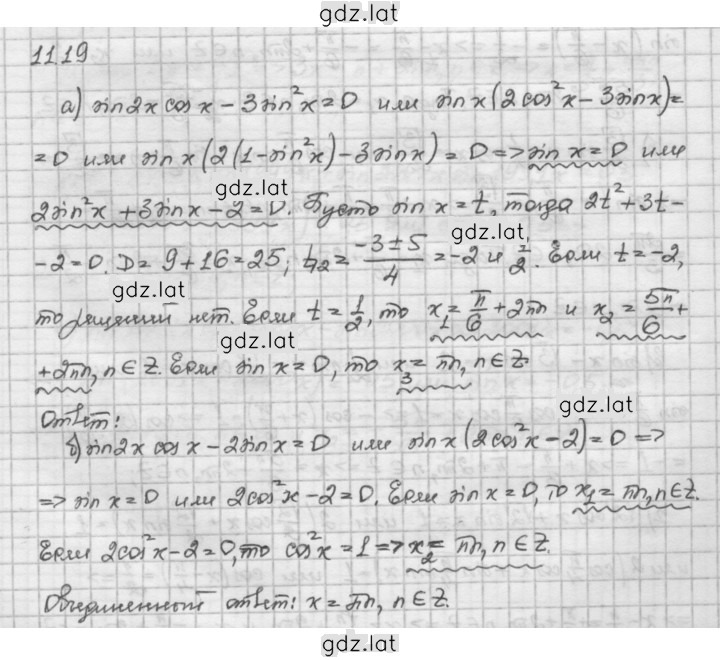 gdz.lat
1119
а) sin2x cos x - 3sin²x = 0 или sin x(2cos²x - 3sinx) =
= 0 или sin x(2(1-sin²x) - 3sinx) = 0 => sin x = 0 или
gdz.lat
2sin²x + 3sinx - 2 = 0. Пусть sin x = t, тогда 2t² + 3t -
gdz.lat
- 2 = 0. D = 9 + 16 = 25; t₁,₂ = (-3 ± 5)/4 = -2 и 1/2. Если t = -2,
gdz.lat
то решений нет. Если t = 1/2, то x₁ = π/6 + 2πn и x₂ = 5π/6 +
gdz.lat
+ 2πn, n ∈ Z. Если sin x = 0, то x₃ = πn, n ∈ Z
gdz.lat
Ответ:
б) sin2x cos x - 2sin x = 0 или sin x(2cos²x - 2) = 0 =>
=> sin x = 0 или 2cos²x - 2 = 0. Если sin x = 0, то x₁ = πn, n ∈ Z.
Если 2cos²x - 2 = 0, то cos²x = 1 => x₂ = πn, n ∈ Z.
Объединенный ответ: x = πn, n ∈ Z.
gdz.lat